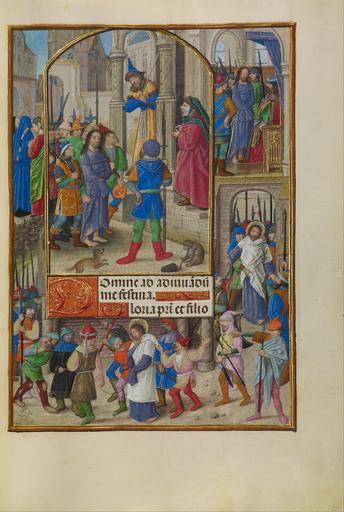 Domine ad adiuuādū
me festina.
loria pr̄i et filio